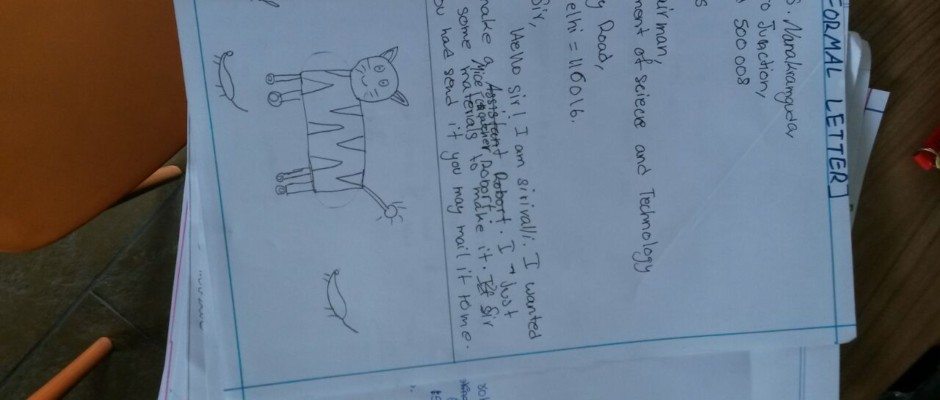 FORMAL LETTER]
S. Nanakramguda
o Junction,
500 008
s
airman,
ment of sciece and Technology
y Road,
elhi = 110016.
Sir,
Hello sir! I am sirivalli. I wanted
make a Assistant Robort. I → Just
Mice catcher Robort.
some materials to make it. If Sir
ou had send it you may mail it to me.